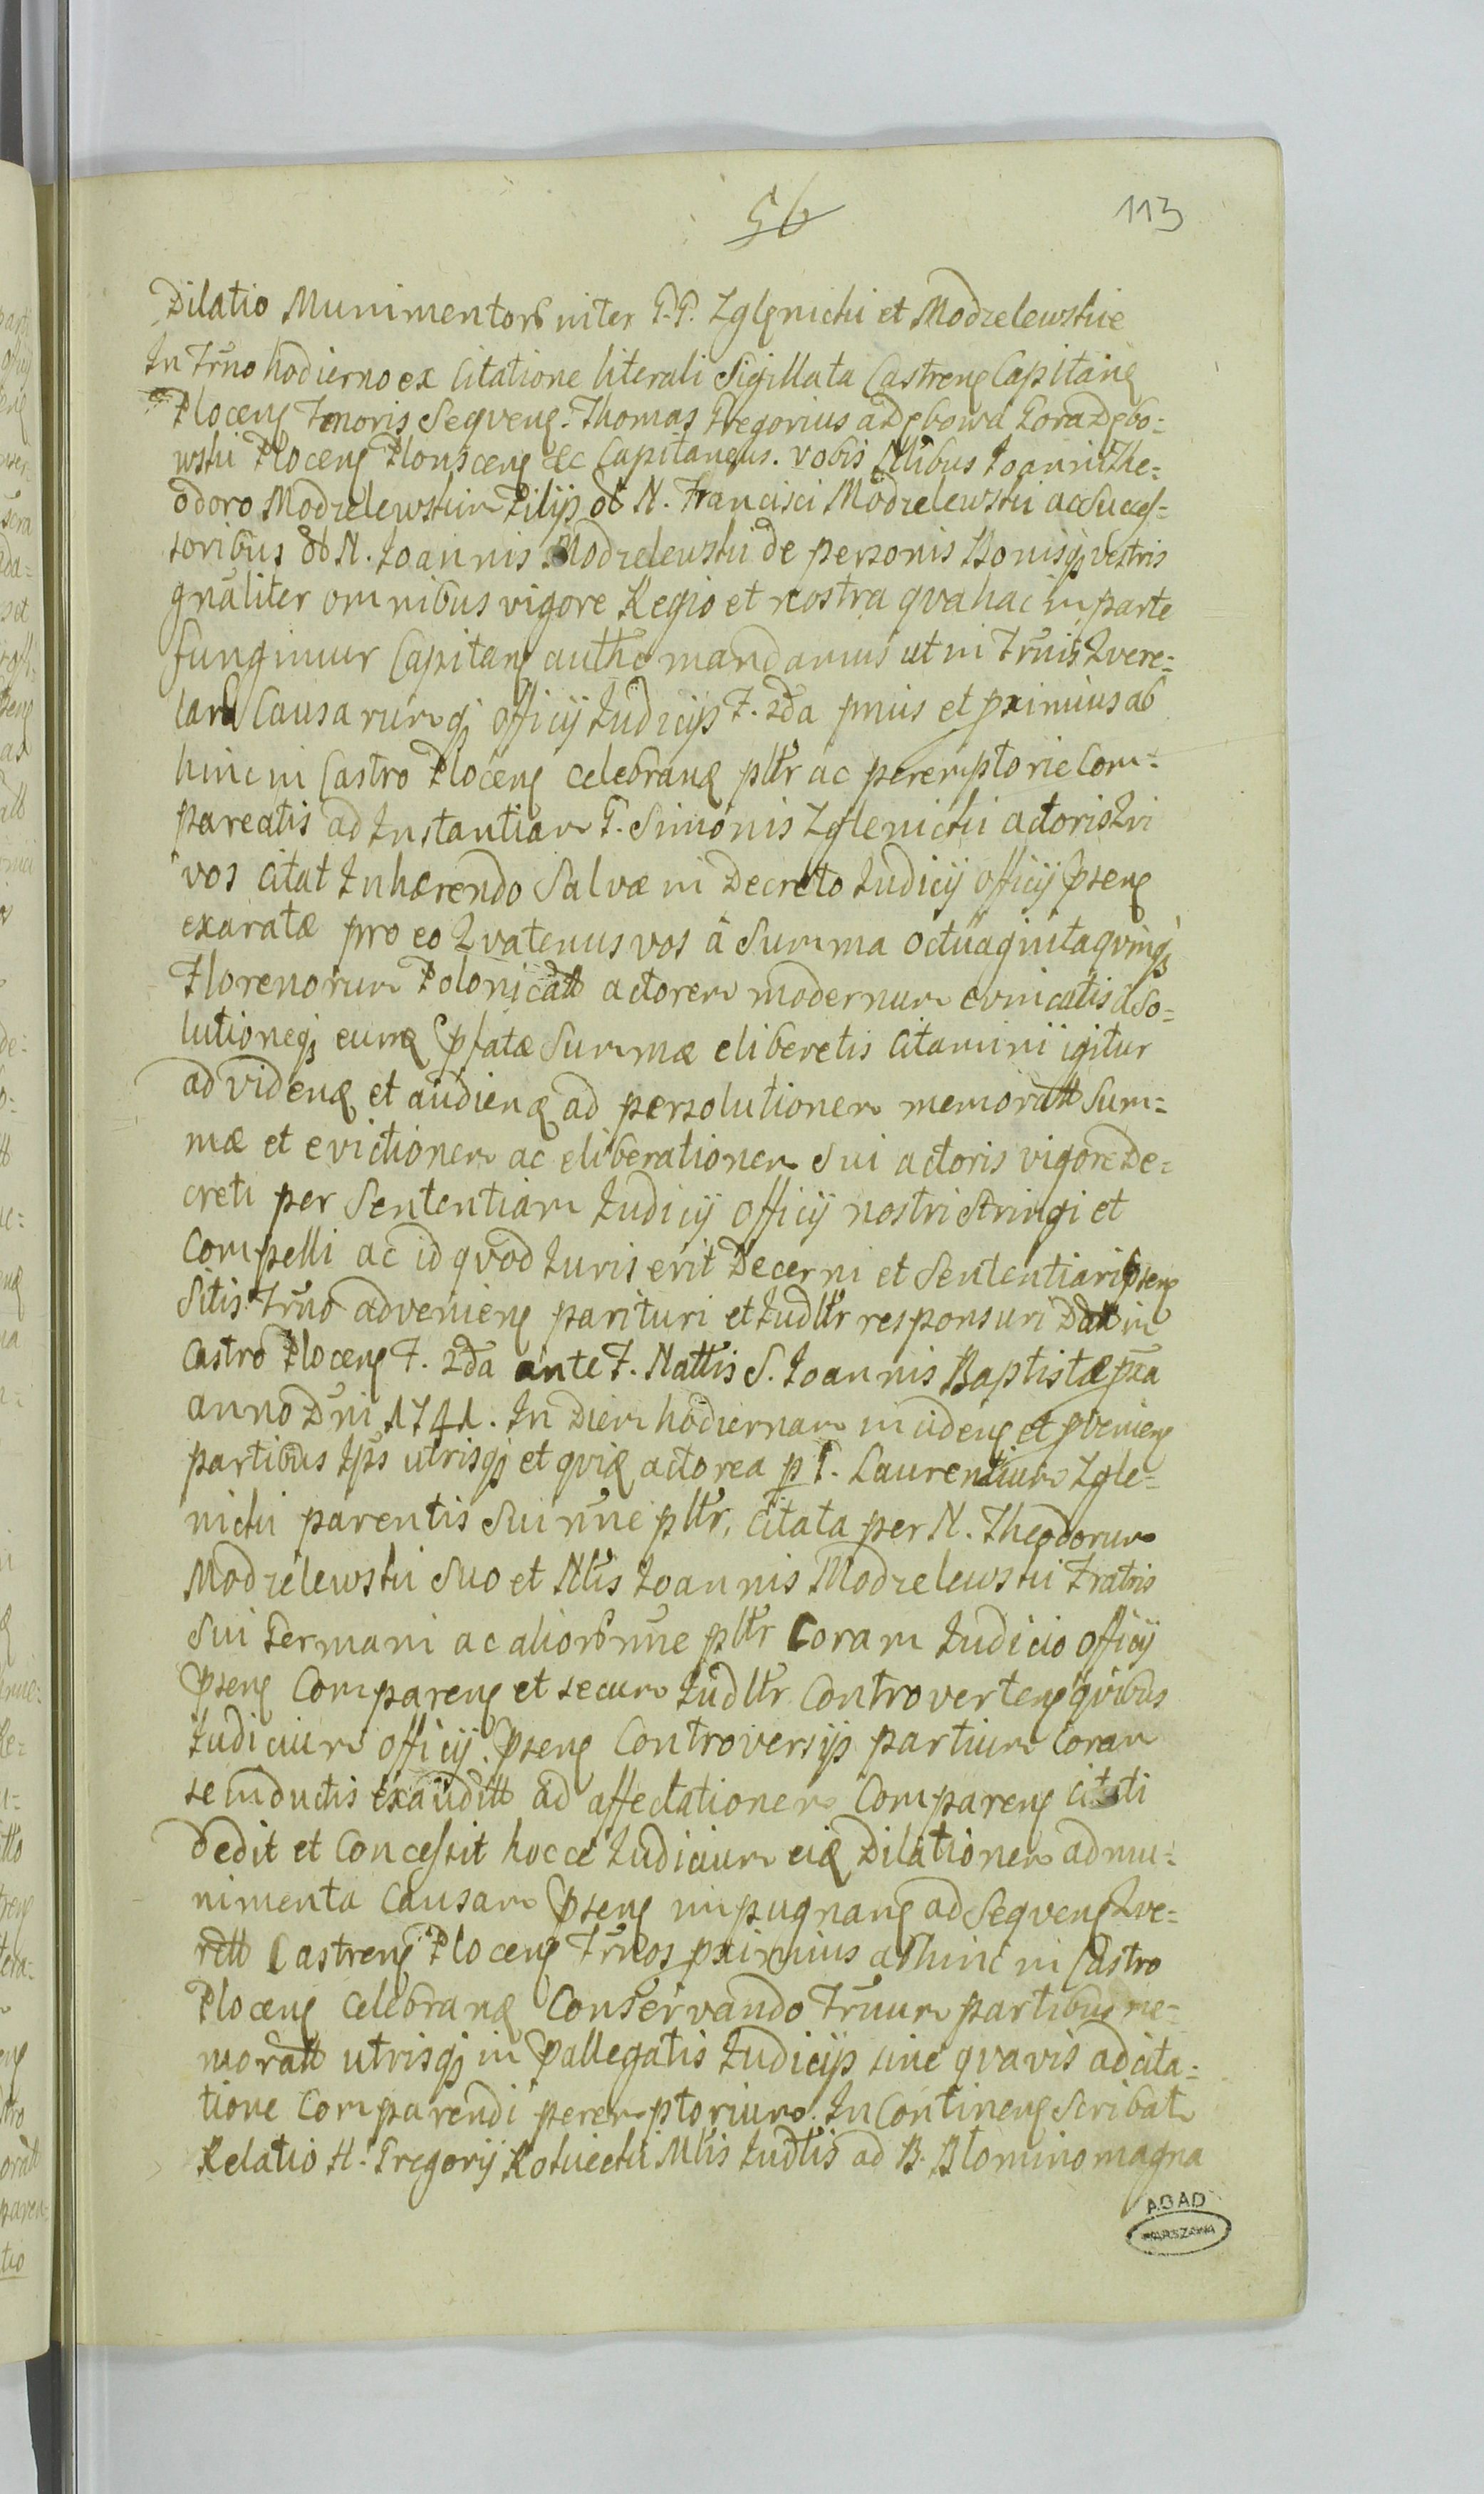 56
113
Dilatio Munimentorũ inter G. G. Zglenicki et Modzelewskie
In Trño hodierno ex Citatione literali Sigillata Castreng Capitang
Ploceng Tenoris Seqveng. Thomas Gregorius a Dębowa Gora Dębo=
wski Ploceng Plonsceng &c Capitaneus. vobis Nlibus Joanni The=
odoro Modzelewskim Filijs olt N. Francisci Modzelewski ac Succes=
soribus olt N. Joannis Modzelewski de personis Bonisqȝ vestris
gnãliter omnibus vigore Regio et nostra qva hac in parte
fungimur Capitang autħe mandamus ut in Trñis Qvere=
larũ Causarumqȝ officij Judicijs F. 2da pmis et pximius ab
hinc in Castro Ploceng celebrand plĩr ac peremptorie Com=
pareatis ad Instantiam G. Simonis Zglenicki actoris Qvi
vos citat Inhærendo Salvæ in Decreto Judicij officij Pseng
exaratæ pro eo Qvatenus vos à Summa octuaginta qving
Florenorum Polonicalt actorem modernum evincatis à So=
lutioneqȝ eund Pfatæ Summæ eliberetis Citamini igitur
ad vidend et audiend ad persolutionem memoratt Sum=
mæ et evictionem ac eliberationem Sui actoris vigore De=
creti per Sententiam Judicij officij nostri stringi et
compelli ac id qvod Juris erit Decerni et Sententiari Pseng
Sitis Trño advenieng parituri et Judłr responsuri Datt in
Castro Ploceng F. 2da ante F. Nattis S. Joannis Baptistæ pxa
anno Dñi 1741. In Diem hodiernam incideng et pvenieng
partibus Ips utrisqȝ et qvid actorea p G. Laurentium Zgle=
nicki parentis Sui nñe płr, Citata per N. Theodorum
Modzelewski Suo et Nlis Joannis Modzelewski Fratris
Sui Germani ac aliorũ nñe płr Coram Judicio officij
Pseng Compareng et secum Judłr Controverteng qvibus
Judicium officij Pseng Controversijs partium Coram
se inductis exauditt ad affectationem Compareng citati
dedit et Concessit hocce Judicium eid Dilationem ad mu=
nimenta Causam Pseng impugnang ad Seqveng Qve=
relt Castreng Ploceng Trños pximius abhinc in Castro
Ploceng celebrand Conservando Trñum partibus me=
moratt utrisqȝ in Pallegatis Judicijs sine qvavis adcita=
tione Comparendi peremptorium. In Contineng Scribat
Relatio H. Gregorij Kotwicki Mlis Judłis ad B. Blomino magna
AGAD
WARSZAWA